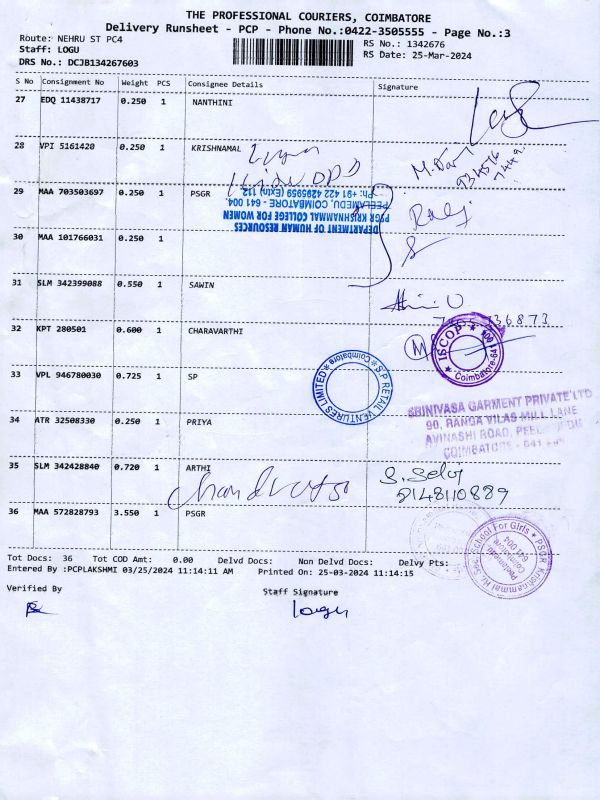 THE PROFESSIONAL COURIERS, COIMBATORE
Delivery Runsheet - PCP - Phone No.:0422-3505555 - Page No.:3
Route: NEHRU ST PC4
RS No.: 1342676
Staff: LOGU
RS Date: 25-Mar-2024
DRS No.: DCJB134267603
S No Consignment No Weight PCS Consignee Details Signature
27 EDQ 11438717 0.250 1 NANTHINI
28 VPI 5161420 0.250 1 KRISHNAMAL
29 MAA 703503697 0.250 1 PSGR
DEPARTMENT OF HUMAN RESOURCES
PSGR KRISHNAMMAL COLLEGE FOR WOMEN
PEELAMEDU, COIMBATORE - 641 004.
Ph: +91 422 4295959 (Extn) 112
30 MAA 101766031 0.250 1
31 SLM 342399088 0.550 1 SAWIN
32 KPT 280501 0.600 1 CHARAVARTHI
ISCOP
Coimbatore-641
33 VPL 946780030 0.725 1 SP
S.P RETAIL VENTURES LIMITED Coimbatore
SRINIVASA GARMENT PRIVATE LTD
90, RANGA VILAS MILL LANE
AVINASHI ROAD,
COIMBATORE - 641
34 ATR 32508330 0.250 1 PRIYA
35 SLM 342428840 0.720 1 ARTHI
S. Selvi
36 MAA 572828793 3.550 1 PSGR
PSGR Krishnammal Hr. Sec. School For Girls
Peelamedu
Coimbatore
641 004
Tot Docs: 36 Tot COD Amt: 0.00 Delvd Docs: Non Delvd Docs: Delvy Pts:
Entered By :PCPLAKSHMI 03/25/2024 11:14:11 AM Printed On: 25-03-2024 11:14:15
Verified By Staff Signature
Logu